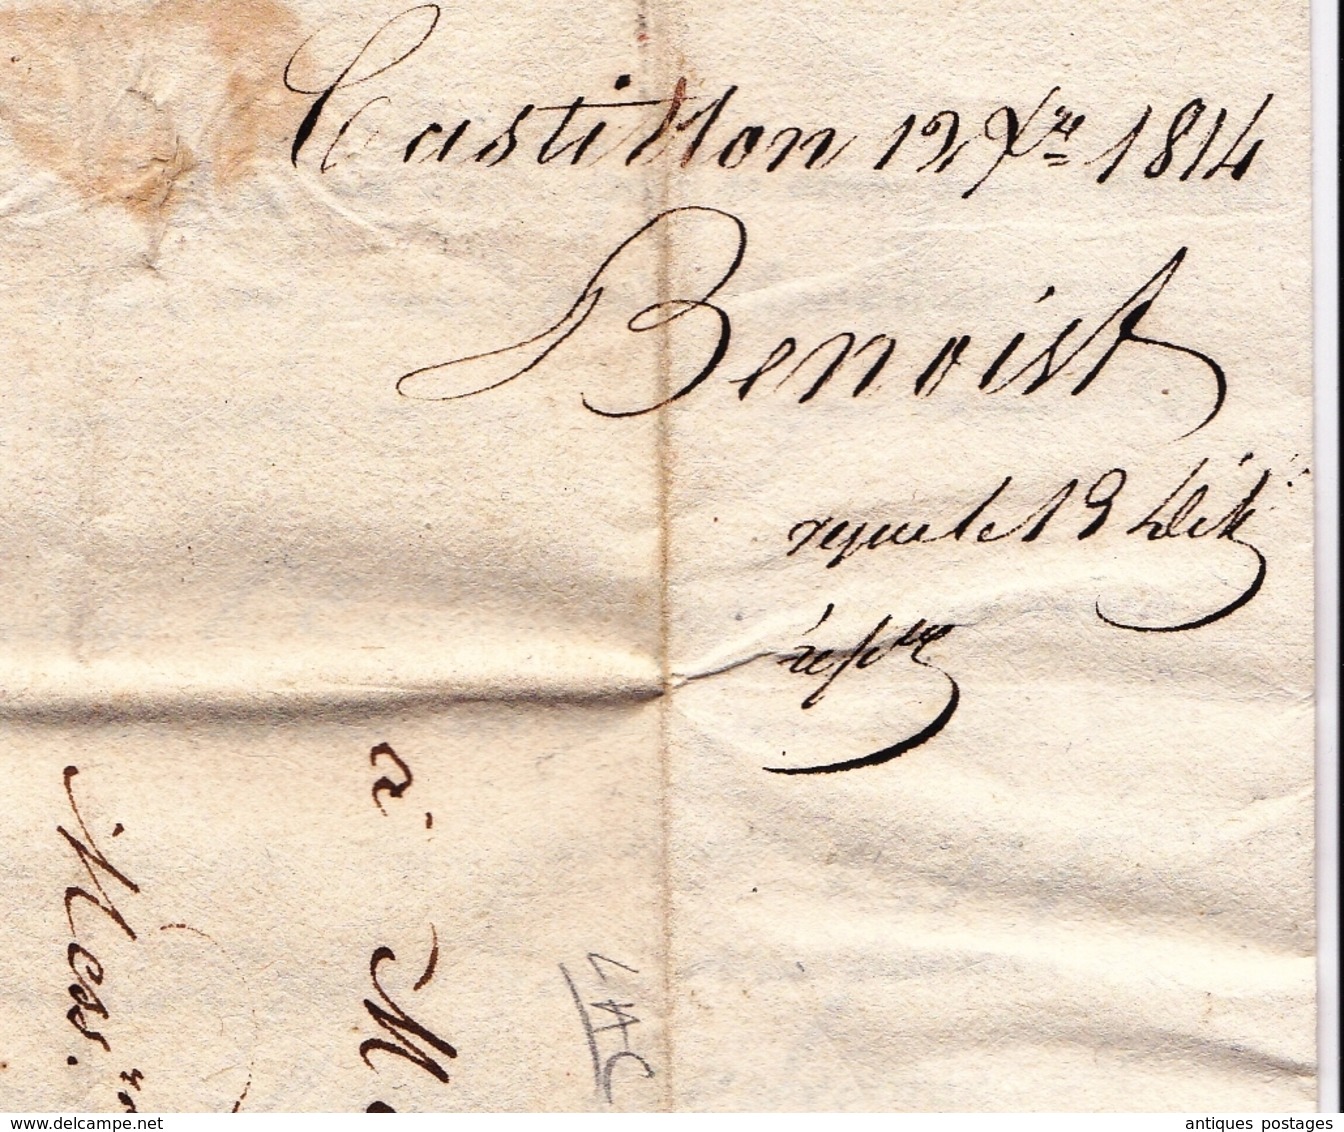 Castillon 12 Xre 1814
Benoist
reçue le 19
à
Mess.rs
M
www.delcampe.net
antiques postages